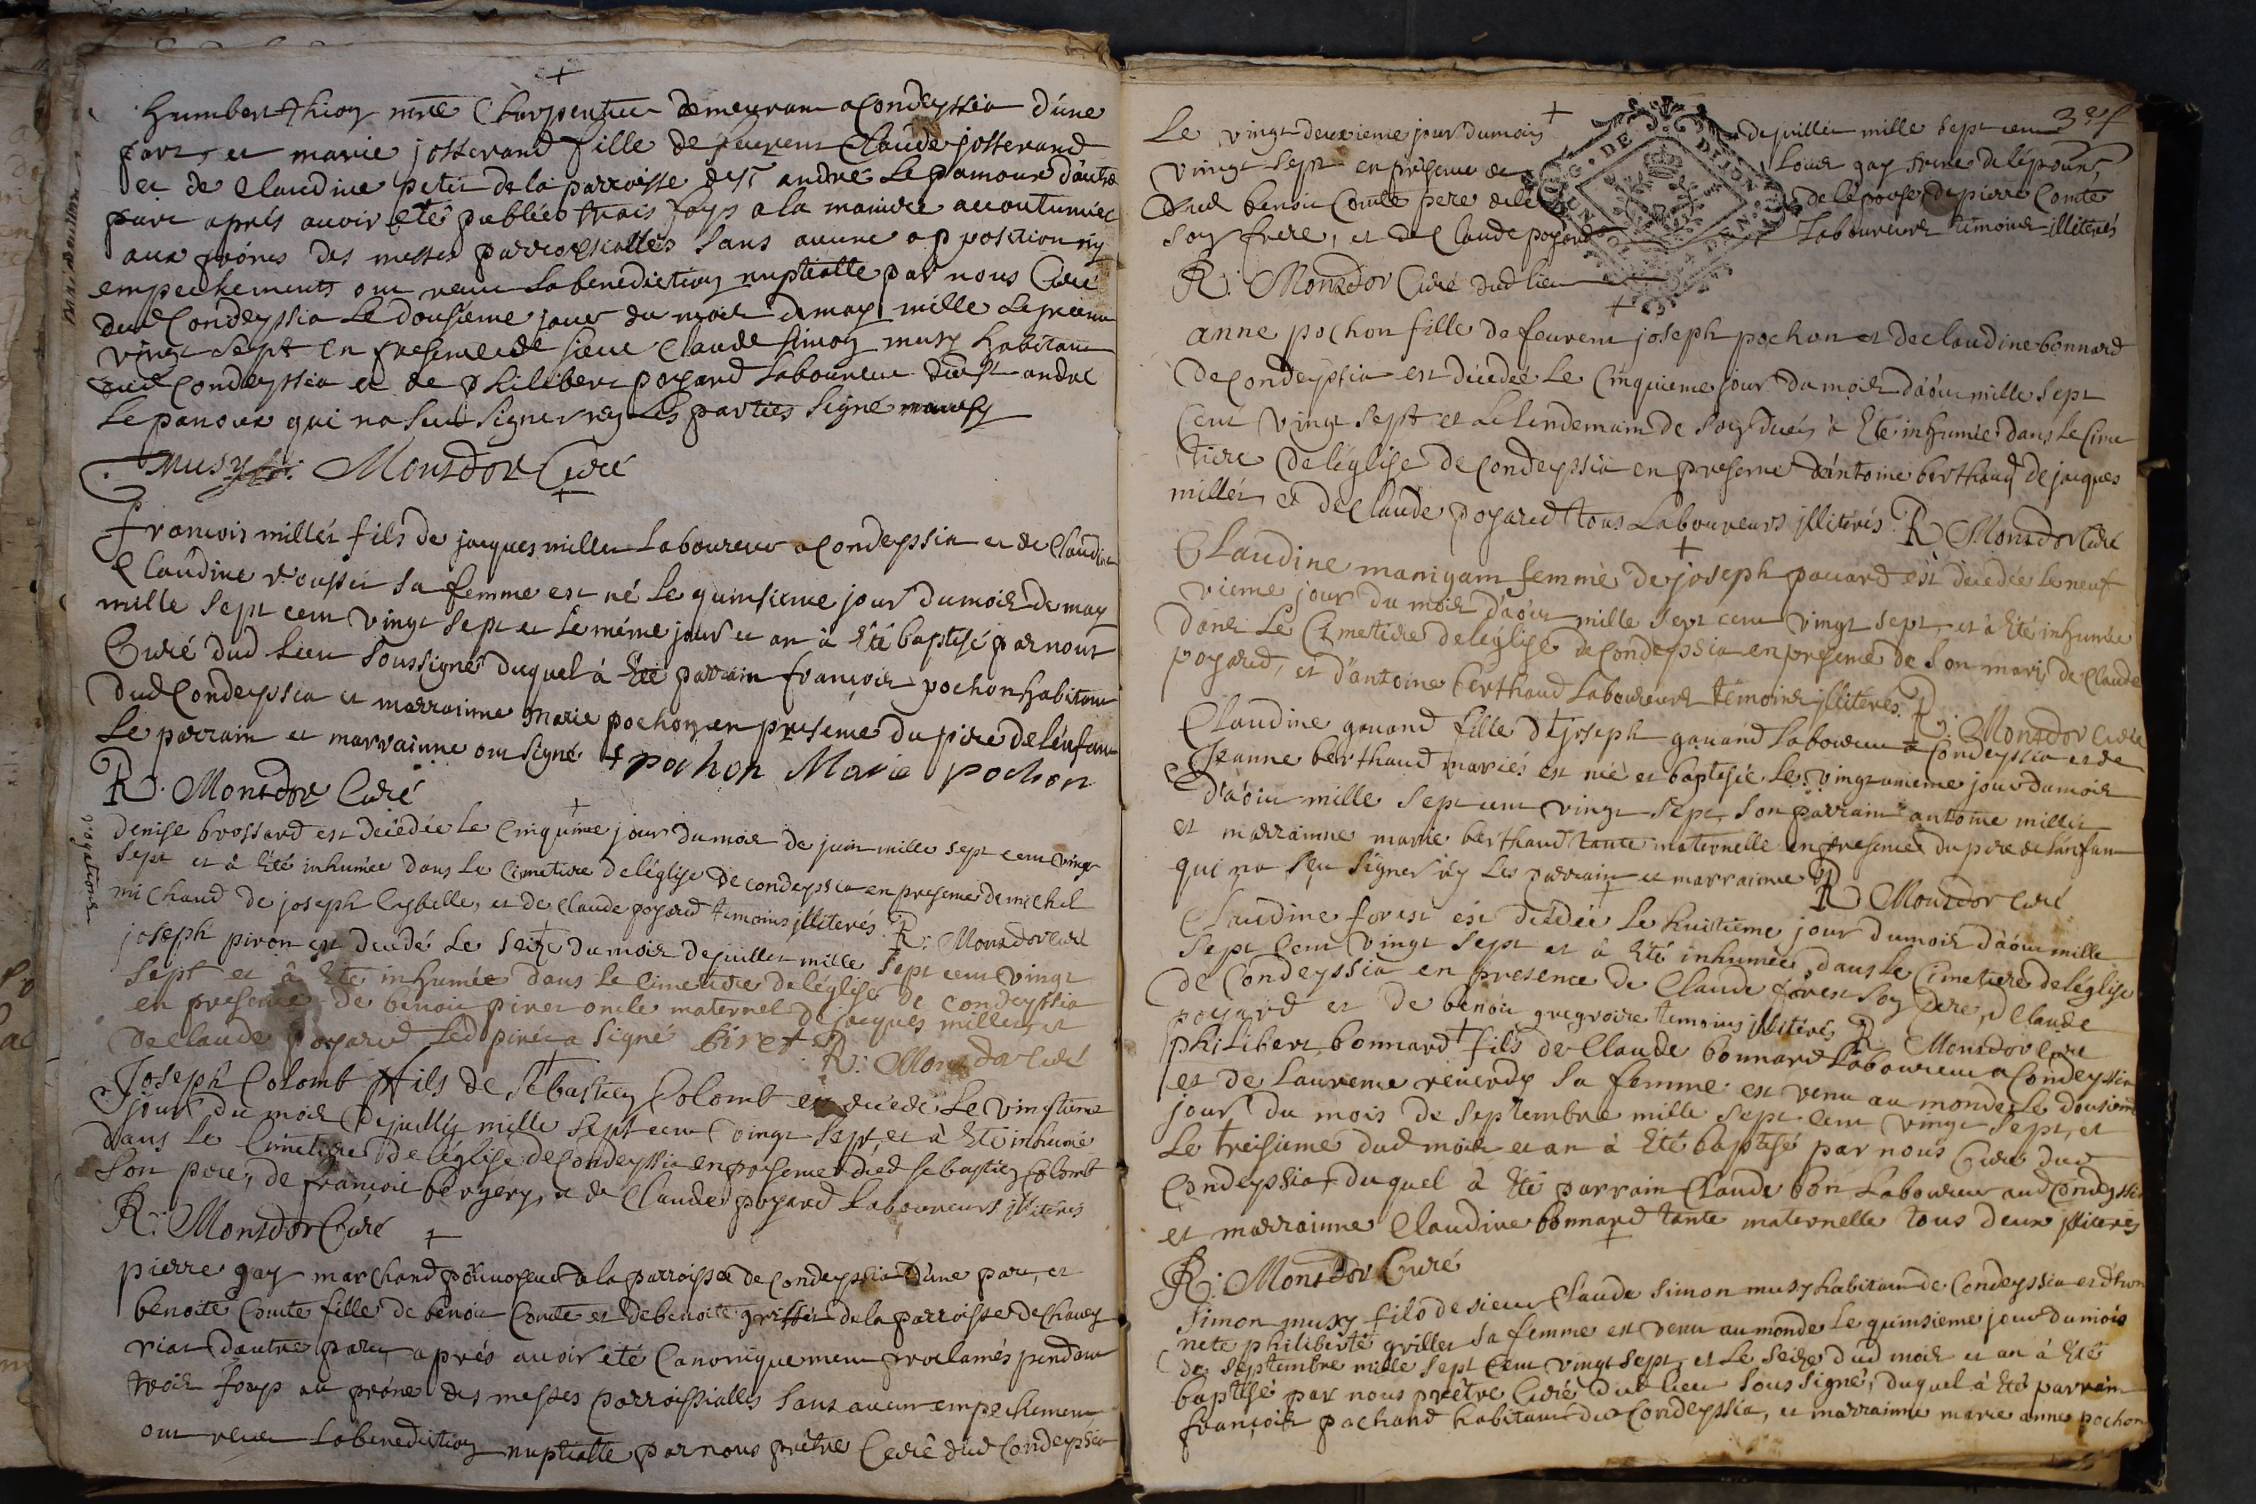 humbert thion mtre Charpentier demeurant a Condeyssia d'une
part, et marie josserand fille de feurent Claude josserand
et de Claudine petit de la parroisse de St andré Le panoux d'autre
part aprés avoir eté publiée trois foys a la maniere accoutumée
aux prônes des messes parroissialles sans aucune opposition ny
empechements ont receu La benediction nuptialle par nous Curé
dud Condeyssia Le dousiéme jour du mois de may mille Septcent
vingt Sept en presence de sieur Claude Simon musy habitant
aud Condeyssia et de philibert poyard Laboureur dud St andré
Le panoux qui na sceu signer ny Les parties signé
Musy Monsdor Curé
francois millét fils de jacques millet Laboureur a Condeyssia et de Claudine
Claudine roussét sa femme est né Le quinsieme jour du mois de may
mille Sept cent vingt Sept et Le méme jour et an à Eté baptisé par nous
Curé dud Lieu soussigné duquel à Eté parrain françois pochon habitant
dud Condeyssia et marrainne marie pochon en presence du pere de L'enfant
Le parrain et marrainne ont signé f pochon Marie pochon
R. Monsdor Curé
rogations
denise brossard est decedée Le Cinquiéme jour du mois de juin mille Sept cent vingt
Sept et à Eté inhumée dans Le Cimetiere de L'église de Condeyssia en presence de michel
michaud de joseph Cybelle, et de Claude poyard témoins illiterés. R. Monsdor Curé
joseph piron est decedé Le Seize du mois de juillet mille Sept cent vingt
Sept et à Eté inhumée dans Le Cimetiere de L'église de Condeyssia
en presence de benoit piret oncle maternel de jacques millet, et
de Claude poyard Led pirét a signé Piret R: Monsdor Curé
Joseph Colomb fils de Sebastien Colomb est decedé Le vingtiéme
jour du mois de juillét mille Sept cent vingt Sept, et à Eté inhumé
dans Le Cimetiere de L'église de Condeyssia en presence dud Sebastien Colomb
Son pere, de françois bergery, et de Claude poyard Laboureurs illiterés
R: Monsdor Curé
pierre gay marchand de la parroisse de Condeyssia d'une part, et
benoite Comte fille de benoit Comte et de benoite grissét de la parroisse de Chavey
riat d'autre part aprés avoir eté Canoniquement proclamés pendant
trois foys au prône des messes parroissialles sans aucun empechement
ont receu La benediction nuptialle par nous prêtre Curé dud Condeyssia
32 f
Le vingt deuxieme jour du mois de juillet mille Sept cent
vingt Sept en presence de Louis gay frere de l'époux,
dud benoit Comte pere de l'e de L'epouse, de pierre Comte
Son frere, et de Claude poyard Laboureurs témoins illiterés
GEN DE DIJON
R: Monsdor Curé dud lieu
anne pochon fille de feurent joseph pochon et de Claudine bonnard
de Condeyssia est decedée Le Cinquieme jour du mois d'aout mille Sept
Cent vingt Sept et Le Lendemain de Son decés à Eté inhumée dans Le Cime
tiere de L'église de Condeyssia en presence d'antoine berthaud de jacques
millét, et de Claude poyard tous Laboureurs illiterés. R Monsdor Curé
Claudine manigam femme de joseph pauard est decedée Le neuf
vieme jour du mois d'aout mille Sept cent vingt Sept, et à Eté inhumée
dans Le Cimetiere de L'église de Condeyssia en presence de Son mari, de Claude
poyard, et d'antoine berthaud Laboureurs témoins illiterés. R: Monsdor Curé
Claudine gauand fille de joseph gauand Laboureur a Condeyssia et de
Jeanne berthaud mariés est née et baptisée Le vingtunieme jour du mois
d'aout mille Sept cent vingt Sept, Son parrain antoine millet
et marrainne marie berthaud tante maternelle en presence du pere de L'anfant
qui na sceu signer ny Les parrain et marrainne R Monsdor Curé
Claudine forest est decedée Le huitieme jour du mois d'aout mille
Sept Cent vingt Sept et à Eté inhumée dans Le Cimetiere de L'église
de Condeyssia en presence de Claude forest Son pere, de Claude
poyard et de benoit gregroire temoins illiterés R Monsdor Curé
philibert bonnard fils de Claude bonnard Laboureur a Condeyssia
et de Laurence reverdy Sa femme est venu au monde Le dousieme
jour du mois de Septembre mille Sept Cent vingt Sept, et
Le treisieme dud mois et an à Eté baptisé par nous Curé dud
Condeyssia duquel à Eté parrain Claude bon Laboureur aud Condeyssia
et marrainne Claudine bonnard tante maternelle tous deux illiterés
R: Monsdor Curé
Simon musy fils de sieur Claude Simon musy habitant de Condeyssia et d'hon
nete philiberte grillet sa femme est venu au monde Le quinsieme jour du mois
de Septembre mille Sept Cent vingt Sept, et Le Seize dud mois et an à Eté
baptisé par nous prêtre Curé dud lieu Sous signé, duquel à Eté parrain
françois pachand habitant dud Condeyssia, et marrainne marie anne pochon